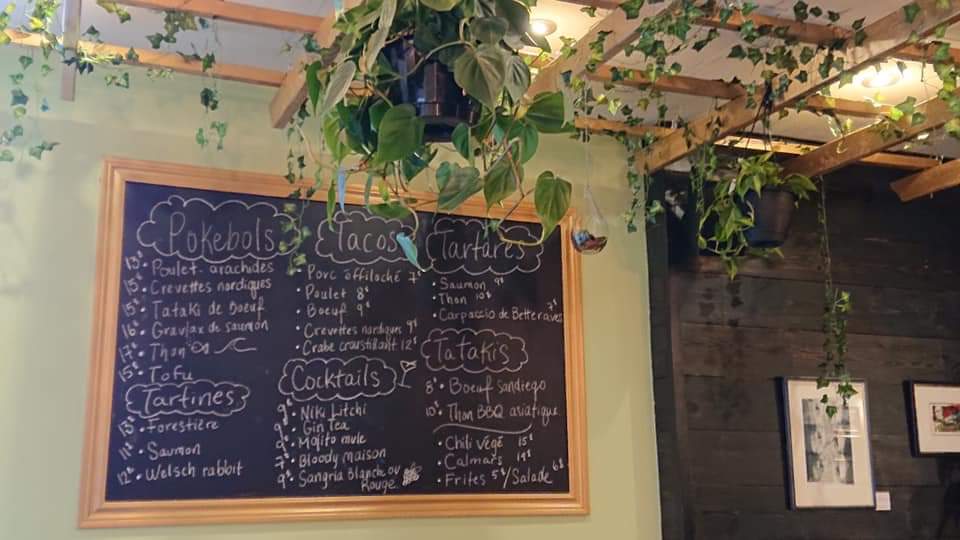 Pokebols
13$ • Poulet arachides
15$ • Crevettes nordiques
15$ • Tataki de Boeuf
16$ • Gravlax de saumon
17$ • Thon
15$ • Tofu
Tartines
13$ • Forestière
11$ • Saumon
12$ • Welsch rabbit
Tacos
• Porc effiloché 7$
• Poulet 8$
• Boeuf 9$
• Crevettes nordiques 9$
• Crabe croustillant 12$
Cocktails
9$ • Niki Litchi
• Gin Tea
• Mojito mule
7$ • Bloody maison
9$ • Sangria Blanche ou
Rouge
Tartares
• Saumon 9$
• Thon 10$
• Carpaccio de Betteraves 7$
Tatakis
8$ • Boeuf sandiego
10$ • Thon BBQ asiatique
• Chili végé 15$
• Calmars 14$
• Frites 5$/Salade 6$